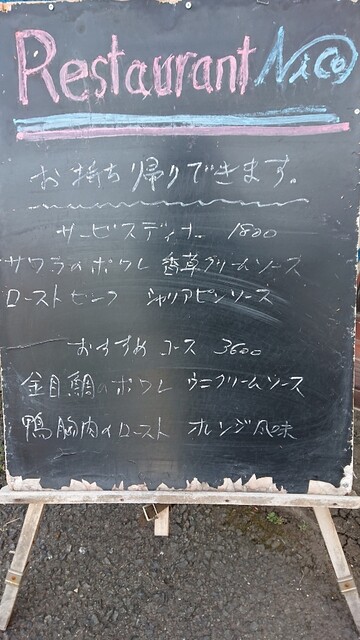 Restaurant Nico
お持ち帰りできます。
サービスディナー 1800
サワラのポワレ 香草クリームソース
ローストビーフ シャリアピンソース
おすすめコース 3600
金目鯛のポワレ ウニクリームソース
鴨胸肉のロースト オレンジ風味